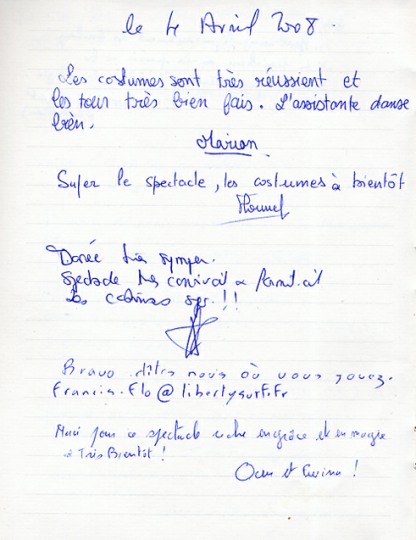 le 4 Avril 2008.
Les costumes sont très réussient et
les tour très bien fais. L'assistante danse
bièn.
Marion
Super le spectacle, les costumes à bientôt
Soirée très sympa.
Spectacle très convivial &
les costumes !!
Bravo dîtes nous où vous jouez.
Francis.flo@libertysurf.fr
Merci pour ce spectacle riche en grâce et en magie
à Très Bientôt !
et !